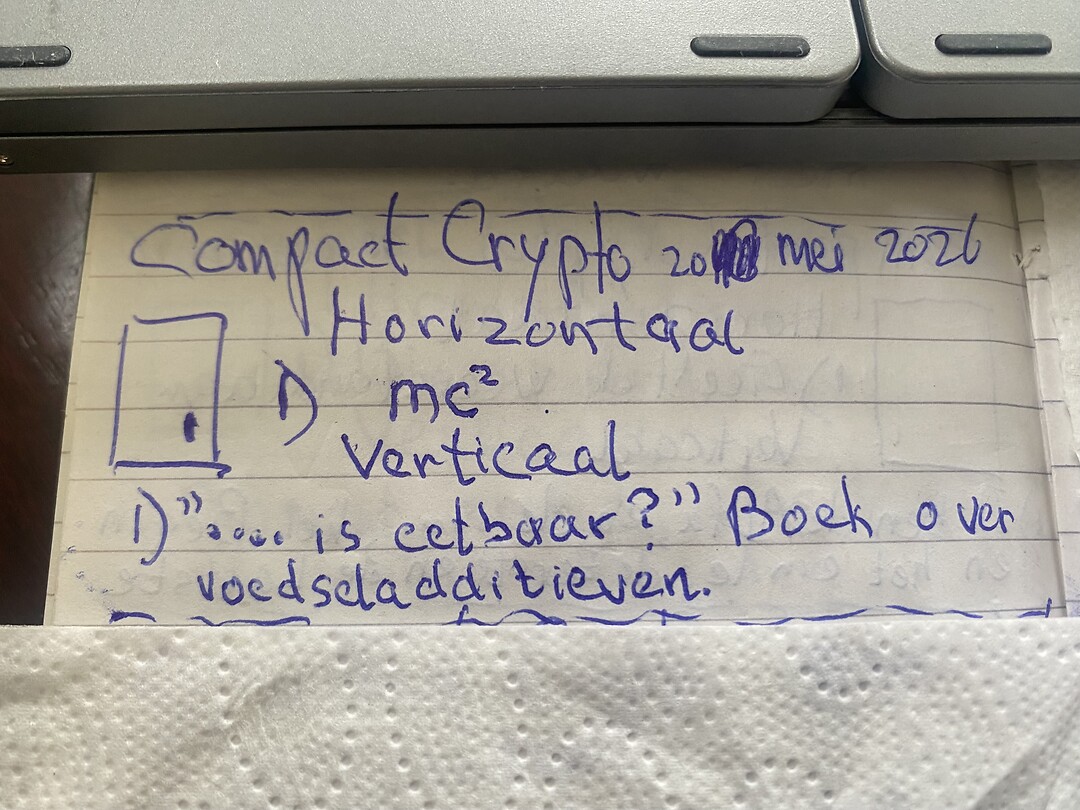 Compact Crypto 20 mei 2026
Horizontaal
1) mc²
Verticaal
1) "..... is eetbaar?" Boek over
voedseladditieven.